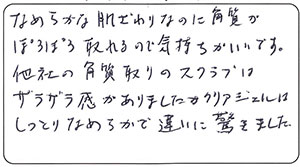 なめらかな肌ざわりなのに角質が
ぽろぽろ取れるので気持ちがいいです。
他社の角質取りのスクラブは
ザラザラ感がありましたがクリアジェルは
しっとりなめらかで違いに驚きました。